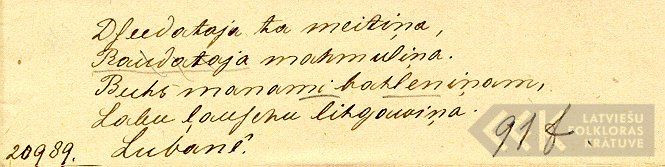 Dſeedataja ta meitiņa,
Raudataja mahmuliņa.
Buhs manami bahleniņam,
Labu ļauſchu lihgawiņa.
91 f.
20989. Lubānē.
LATVIEŠU
FOLKLORAS
KRĀTUVE